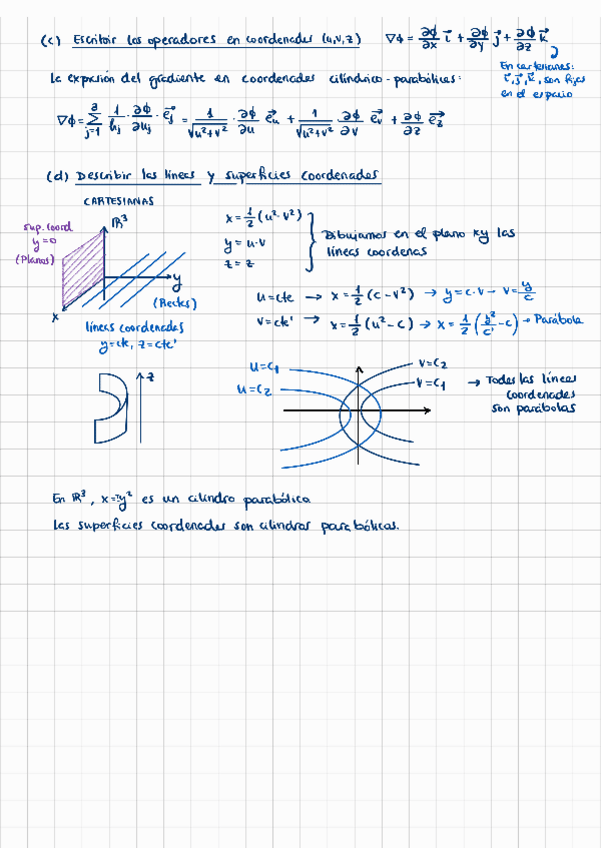 (c) Escribir los operadores en coordenadas (u,v,z) ∇ϕ = ∂ϕ/∂x i⃗ + ∂ϕ/∂y j⃗ + ∂ϕ/∂z k⃗
En cartesianas:
i⃗, j⃗, k⃗, son fijas
en el espacio
La expresión del gradiente en coordenadas cilíndrico-parabólicas:
∇ϕ = Σ_{j=1}^{3} 1/h_j · ∂ϕ/∂u_j · e⃗_j = 1/√(u²+v²) · ∂ϕ/∂u e⃗_u + 1/√(u²+v²) ∂ϕ/∂v e⃗_v + ∂ϕ/∂z e⃗_z
(d) Describir las líneas y superficies coordenadas
CARTESIANAS
sup. coord
y=0
(Planos)
ℝ³
y
x
(Rectas)
líneas coordenadas
y=cte, z=cte'
x = 1/2 (u²-v²)
y = u·v
z = z
Dibujamos en el plano xy las
líneas coordenas
u=cte → x = 1/2 (c - v²) → y = c·v → v = y/c
v=cte' → x = 1/2 (u² - c) → x = 1/2 (y²/c' - c) → Parábola
z
u=c₁
u=c₂
v=c₂
v=c₁
→ Todas las líneas
coordenadas
son parábolas
En ℝ³, x=y² es un cilindro parabólico
Las superficies coordenadas son cilindros parabólicos.